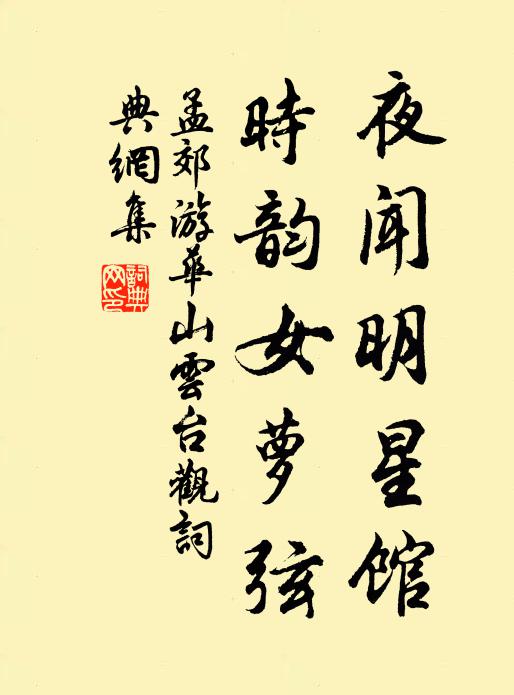 夜闻明星馆
時韵女萝弦
孟郊游華山雲台觀詞
典網集
詞典网印